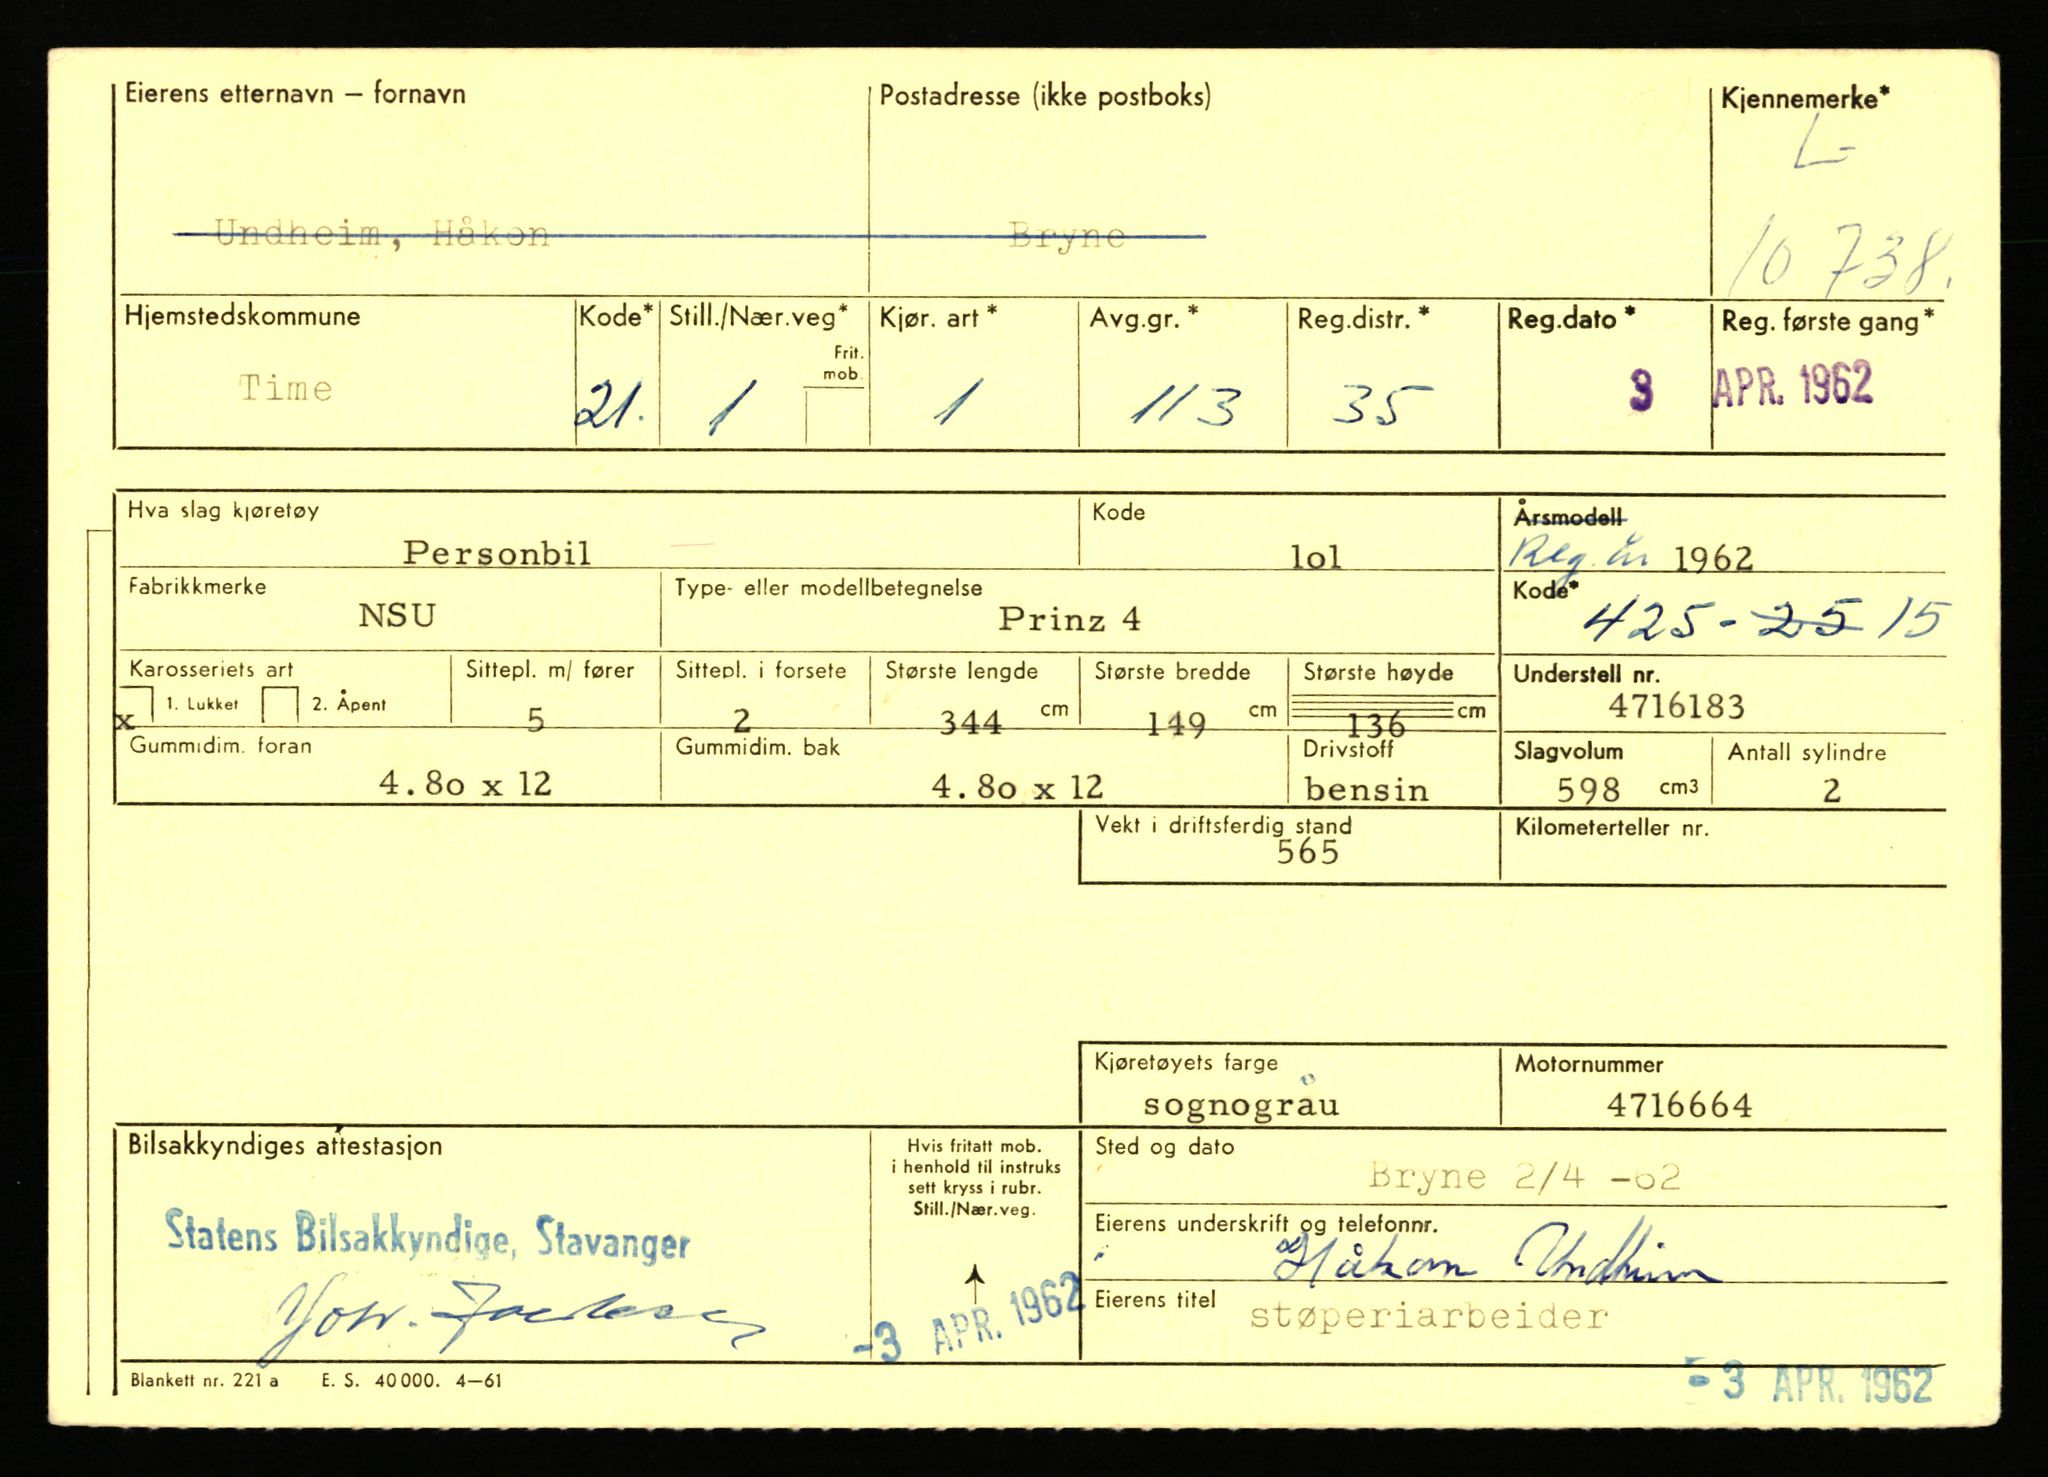 Eierens etternavn – fornavn
Postadresse (ikke postboks)
Kjennemerke*
L-
Undheim, Håkon
Bryne
10 738.
Hjemstedskommune
Kode*
Still./Nær.veg*
Kjør. art *
Avg.gr. *
Reg.distr. *
Reg.dato *
Reg. første gang *
Frit.
mob.
Time
21.
1
1
113
35
3 APR. 1962
Hva slag kjøretøy
Kode
Årsmodell
Personbil
lol
Reg. år 1962
Fabrikkmerke
Type- eller modellbetegnelse
Kode*
NSU
Prinz 4
425-25 15
Karosseriets art
Sittepl. m/ fører
Sittepl. i forsete
Største lengde
Største bredde
Største høyde
Understell nr.
x 1. Lukket 2. Åpent
5
2
344 cm
149 cm
136 cm
4716183
Gummidim. foran
Gummidim. bak
Drivstoff
Slagvolum
Antall sylindre
4.8o x 12
4.8o x 12
bensin
598 cm3
2
Vekt i driftsferdig stand
Kilometerteller nr.
565
Kjøretøyets farge
Motornummer
sognogrå​u
4716664
Bilsakkyndiges attestasjon
Hvis fritatt mob.
i henhold til instruks
sett kryss i rubr.
Still./Nær.veg.
Sted og dato
Bryne 2/4 -62
Statens Bilsakkyndige, Stavanger
Eierens underskrift og telefonnr.
Håkon Undheim
-3 APR. 1962
Eierens titel
støperiarbeider
Blankett nr. 221 a E. S. 40 000. 4–61
-3 APR. 1962